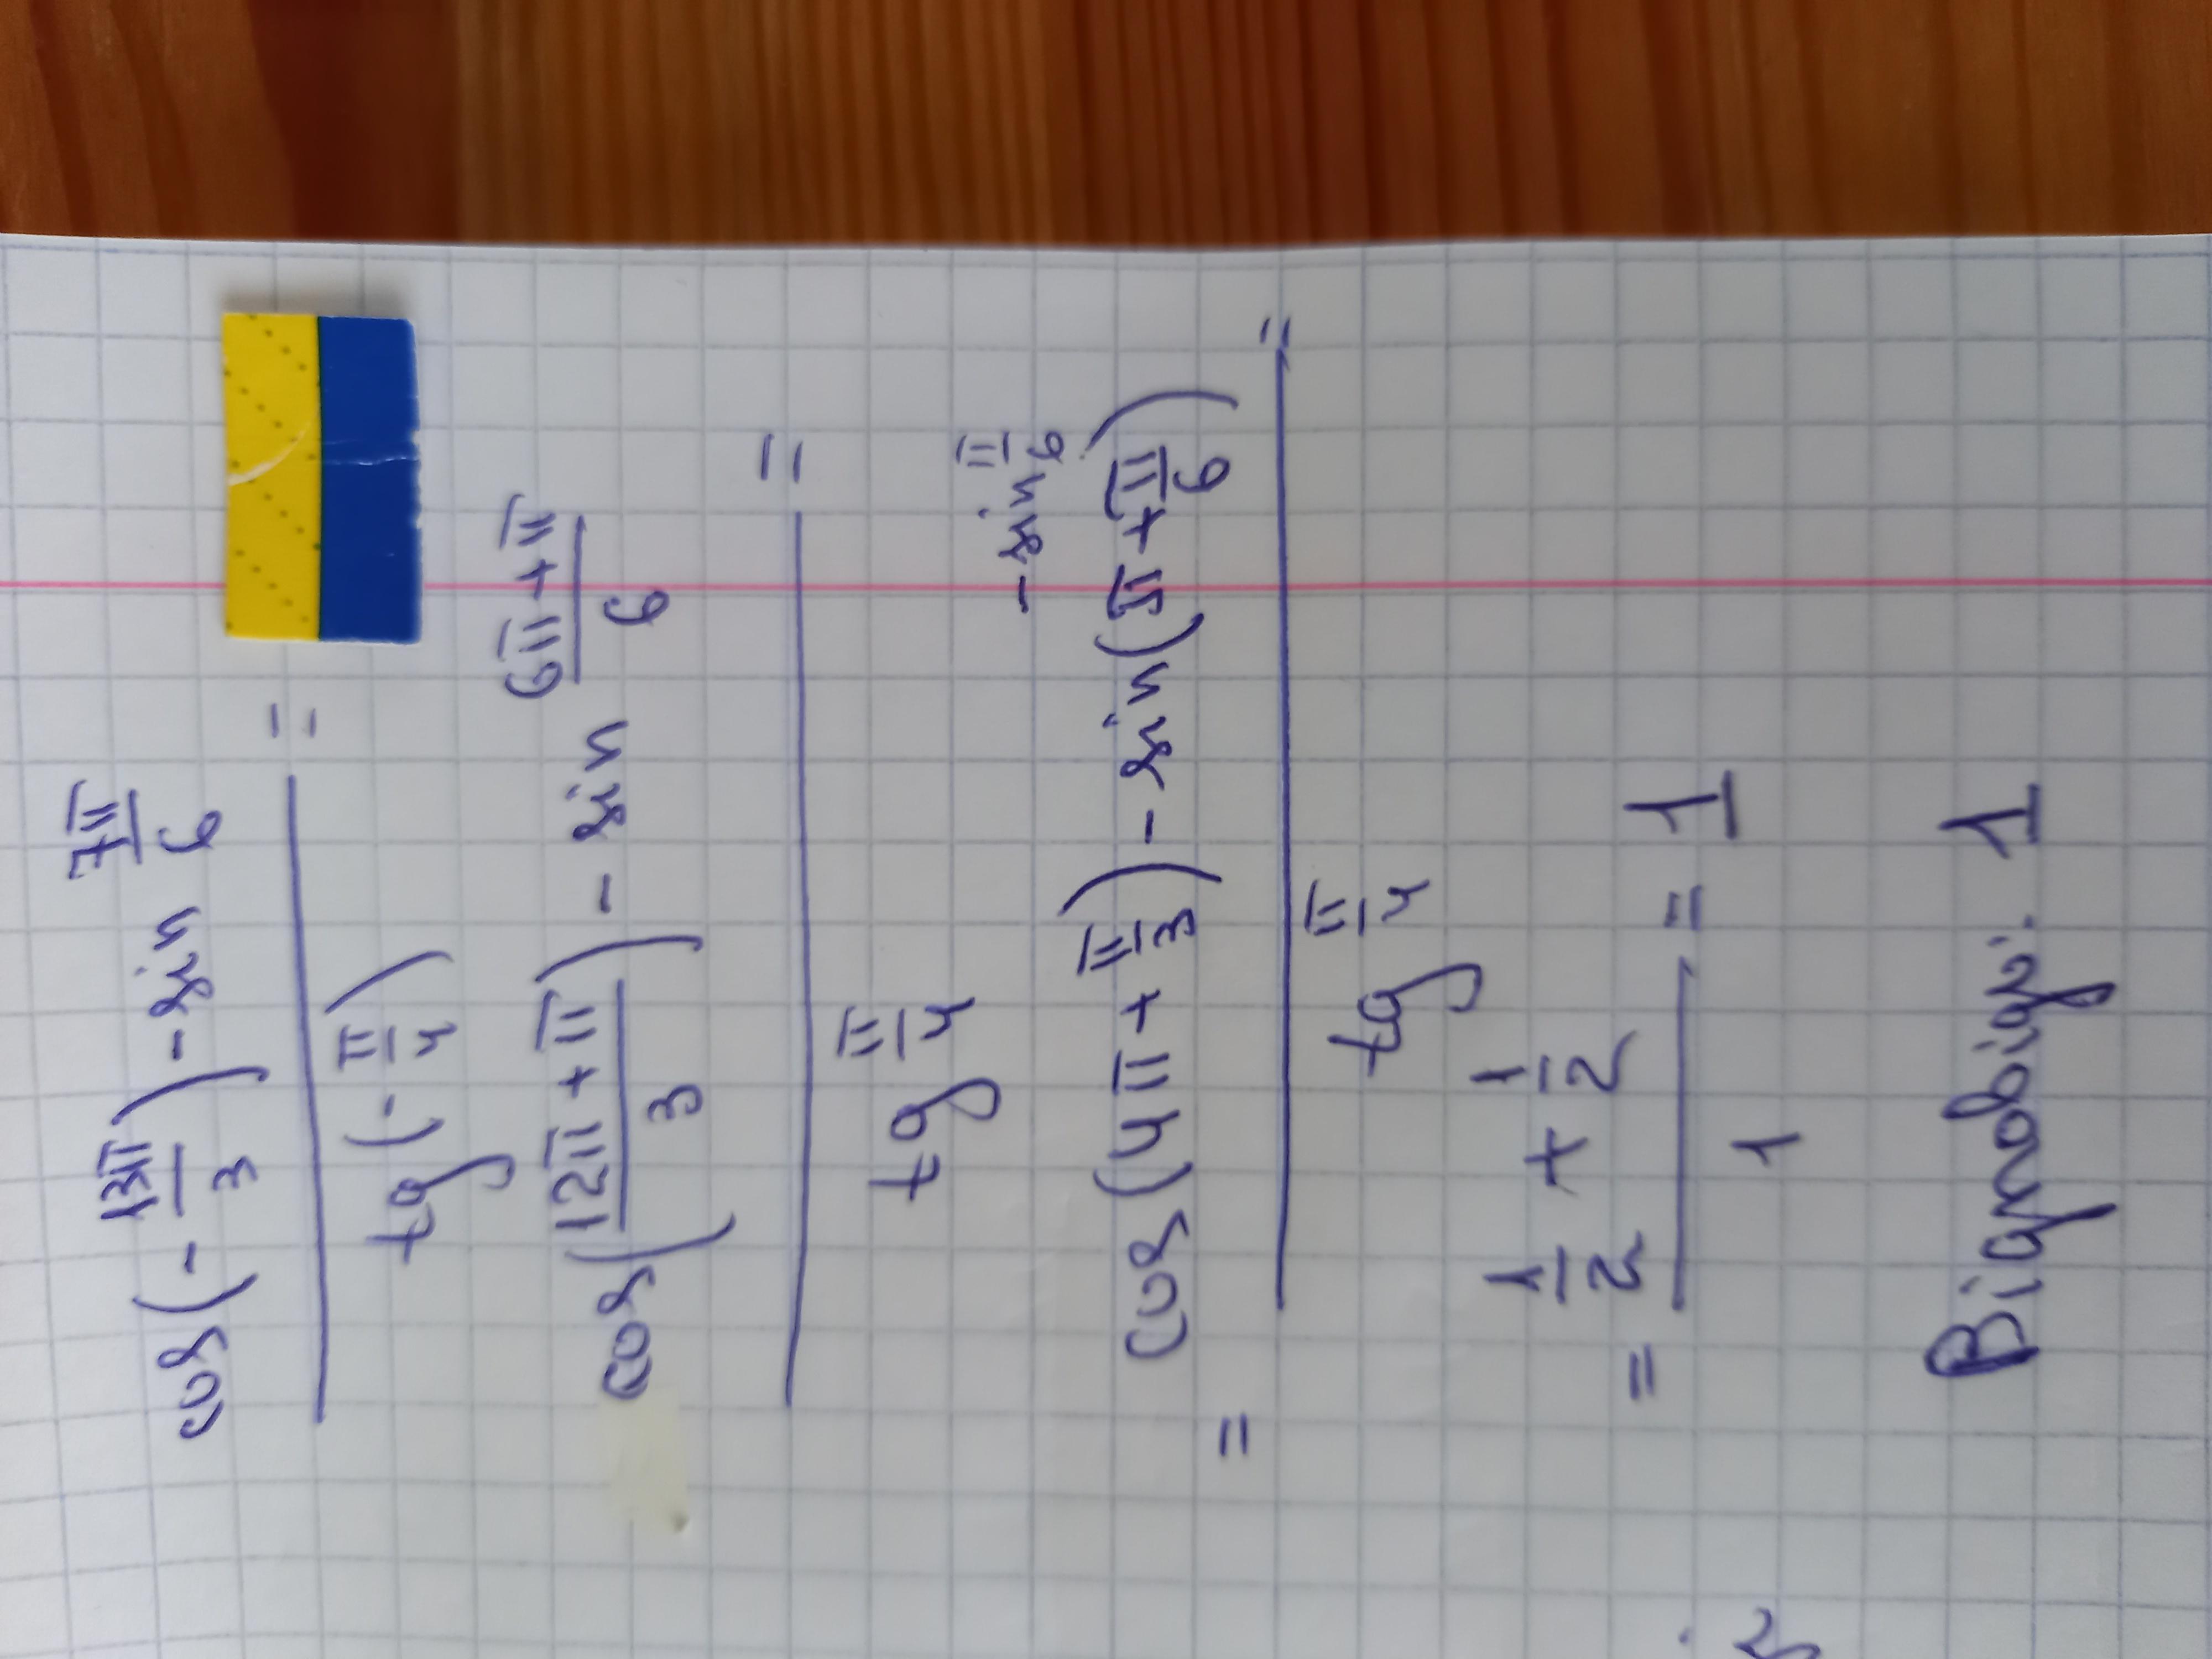 cos(-13π/3) - sin 7π/6
=
tg(-π/4)
cos(12π+π/3) - sin 6π+π/6
=
tg π/4
- sin π/6
= cos(4π + π/3) - sin(π + π/6)
=
tg π/4
= 1/2 + 1/2 / 1 = 1
Відповідь: 1